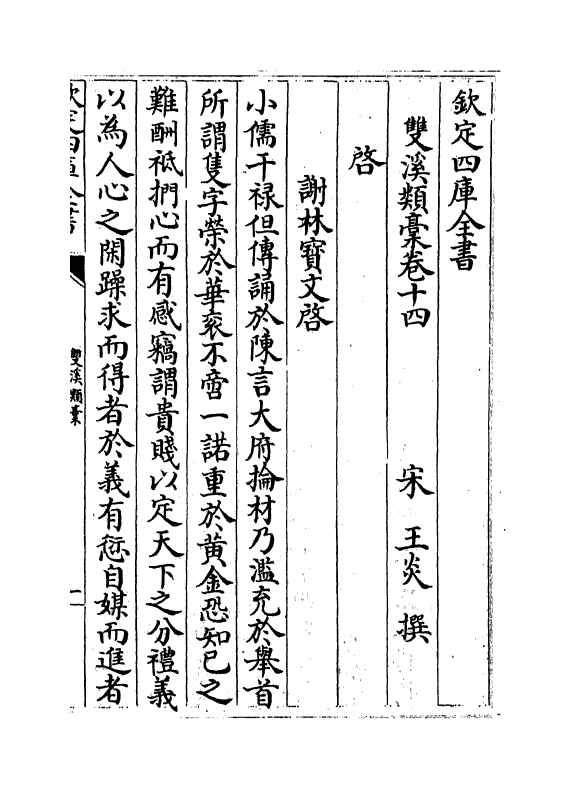 欽定四庫全書
雙溪類稾卷十四
宋 王炎 撰
啓
謝林寶文啓
小儒干禄但傳誦於陳言大府掄材乃濫充於舉首
所謂隻字榮於華衮不啻一諾重於黄金恐知已之
難酬祗捫心而有感竊謂貴賤以定天下之分禮義
以為人心之閑躁求而得者於義有愆自媒而進者
欽定四庫全書
雙溪類稾
一